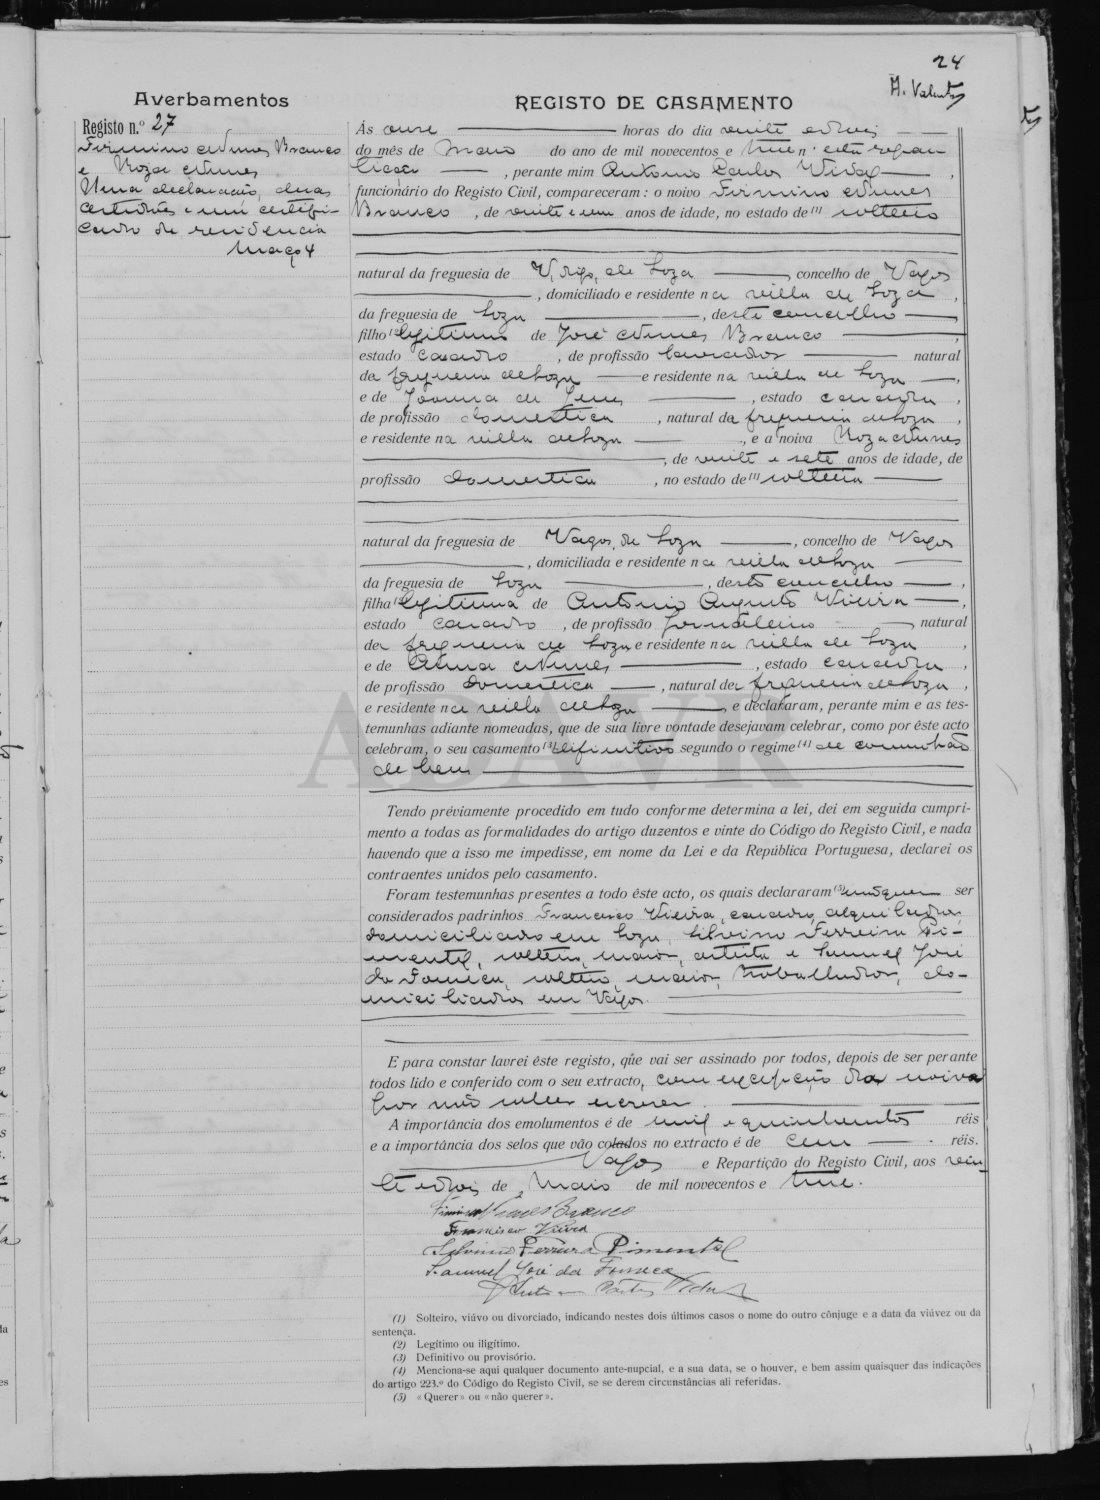 24
A. Valente
Averbamentos
REGISTO DE CASAMENTO
Registo n.º 27
Firmino Nunes Branco
e Roza Nunes
Uma declaração, duas
certidões e um certifi-
cado de residencia
Maço 4
Ás onze horas do dia vinte e dois
do mês de Maio do ano de mil novecentos e treze n esta repar
tição, perante mim Antonio Carlos Vidal,
funcionário do Registo Civil, compareceram: o noivo Firmino Nunes
Branco, de vinte e um anos de idade, no estado de (1) solteiro
natural da freguesia de Vagos, de Soza, concelho de Vagos
, domiciliado e residente na villa de Soza,
da freguesia de Soza, deste concelho,
filho (2) legitimo de José Nunes Branco,
estado casado, de profissão lavrador natural
da freguesia de Soza e residente na villa de Soza,
e de Joanna de Jesus, estado casada,
de profissão domestica, natural da freguesia de Soza,
e residente na villa de Soza, e a noiva Roza Nunes
, de vinte e sete anos de idade, de
profissão domestica, no estado de (1) solteira
natural da freguesia de Vagos, de Soza, concelho de Vagos
, domiciliada e residente na villa de Soza
da freguesia de Soza, deste concelho,
filha legitima de Antonio Augusto Vieira,
estado casado, de profissão jornaleiro natural
da freguesia de Soza e residente na villa de Soza,
e de Anna Nunes, estado casada,
de profissão domestica, natural da freguesia de Soza,
e residente na villa de Soza, e declararam, perante mim e as tes-
temunhas adiante nomeadas, que de sua livre vontade desejavam celebrar, como por êste acto
celebram, o seu casamento (3) definitivo segundo o regime (4) de comunhão
de bens
ADAVR
Tendo préviamente procedido em tudo conforme determina a lei, dei em seguida cumpri-
mento a todas as formalidades do artigo duzentos e vinte do Código do Registo Civil, e nada
havendo que a isso me impedisse, em nome da Lei e da República Portuguesa, declarei os
contraentes unidos pelo casamento.
Foram testemunhas presentes a todo êste acto, os quais declararam (5) não querer ser
considerados padrinhos Francisco Vieira, casado, alquilador,
domiciliado em Soza, Silvino Ferreira Pi-
mentel, solteiro, maior, artista e Samuel José
da Fonseca, solteiro, maior, trabalhador, do-
miciliados em Vagos.
E para constar lavrei êste registo, que vai ser assinado por todos, depois de ser perante
todos lido e conferido com o seu extracto, com excepção da noiva
por não saber escrever.
A importância dos emolumentos é de mil e quinhentos réis
e a importância dos selos que vão colados no extracto é de cem réis.
Vagos e Repartição do Registo Civil, aos vin
te e dois de Maio de mil novecentos e treze.
Firmino Nunes Branco
Francisco Vieira
Silvino Ferreira Pimentel
Samuel José da Fonseca
Antonio Carlos Vidal
(1) Solteiro, viúvo ou divorciado, indicando nestes dois últimos casos o nome do outro cônjuge e a data da viúvez ou da
sentença.
(2) Legítimo ou iligítimo.
(3) Definitivo ou provisório.
(4) Menciona-se aqui qualquer documento ante-nupcial, e a sua data, se o houver, e bem assim quaisquer das indicações
do artigo 223.º do Código do Registo Civil, se se derem circunstâncias ali referidas.
(5) «Querer» ou «não querer».